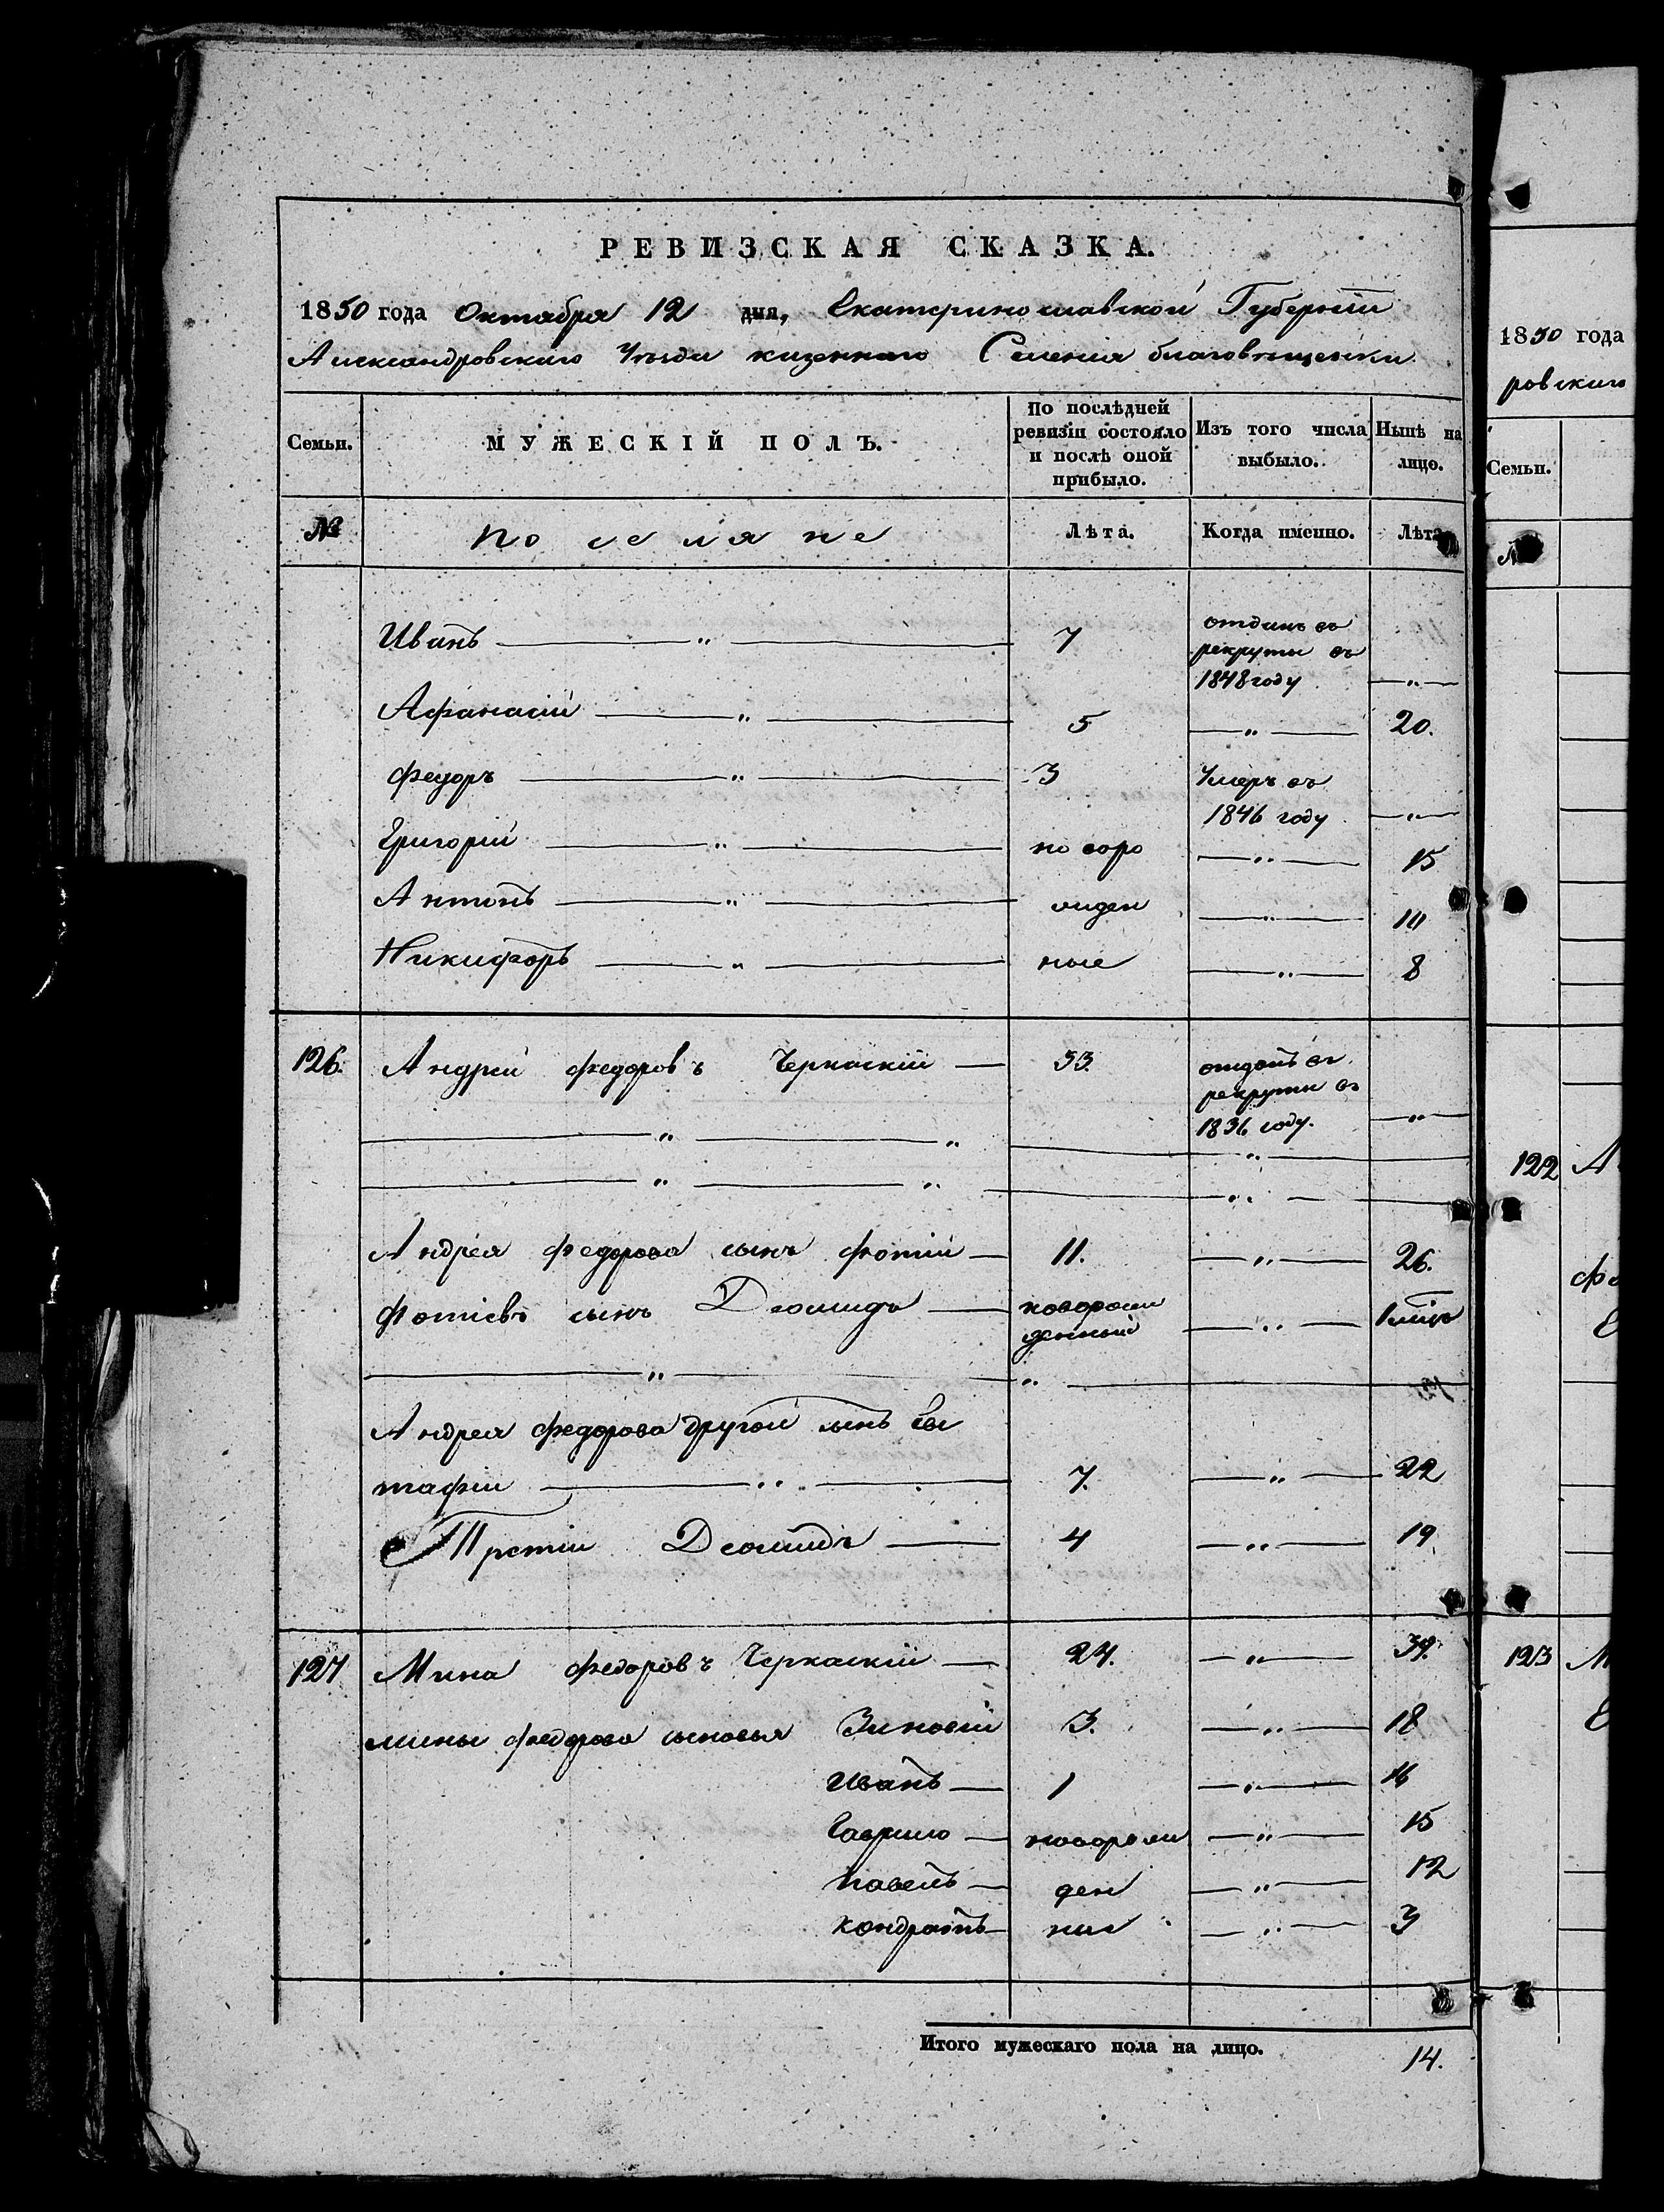 РЕВИЗСКАЯ СКАЗКА.
1850 года Октября 12 дня, Екатеринославской Губернiи
Александровскаго Уѣзда казеннаго Селенiя благовѣщенки
Семьи. МУЖЕСКIЙ ПОЛЪ. По послѣдней ревизiи состояло и послѣ оной прибыло. Изъ того числа выбыло. Нынѣ на лицо.
№ поселяне Лѣта. Когда именно. Лѣта
Иванъ — " — 7 отданъ въ рекруты въ 1848 году — " —
Афанасiй — " — 5 — " — 20.
Федоръ — " — 3 Умеръ въ 1846 году — " —
Григорiй — " — новоро — " — 15
Антонъ — " — жден — " — 10
Никифоръ — " — ные — " — 8
126. Андрей Федоровъ Черкаскiй — 33. отданъ въ рекруты въ 1836 году. — " —
— " — " — " —
— " — " — " —
Андрея Федорова сынъ Фотiй — 11. — " — 26.
Фотiевъ сынъ Дiомидъ — новорож денный — " — 1 мѣся
— " — " —
Андрея Федорова другой сынъ Ев
тафiй — " — 7. — " — 22
Третiй Дiомидъ — 4 — " — 19
127 Мина Федоровъ Черкаскiй — 24. — " — 39.
мины Федорова сыновья Зиновiй 3. — " — 18
Иванъ — 1 — " — 16
Гаврило — новорож — " — 15
Павелъ — ден — " — 12
Кондратъ — ные — " — 3
Итого мужескаго пола на лицо. 14.
1850 года
ровскаго
Семьи.
№
122 А
Фе
123 М